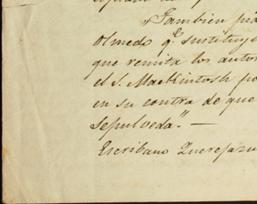 Tambien pi
Olmedo qe. sustituy
que remita los autos
el S. Mackintosh po
en su contra de que
Sepulveda". —
Escribano Querejazu